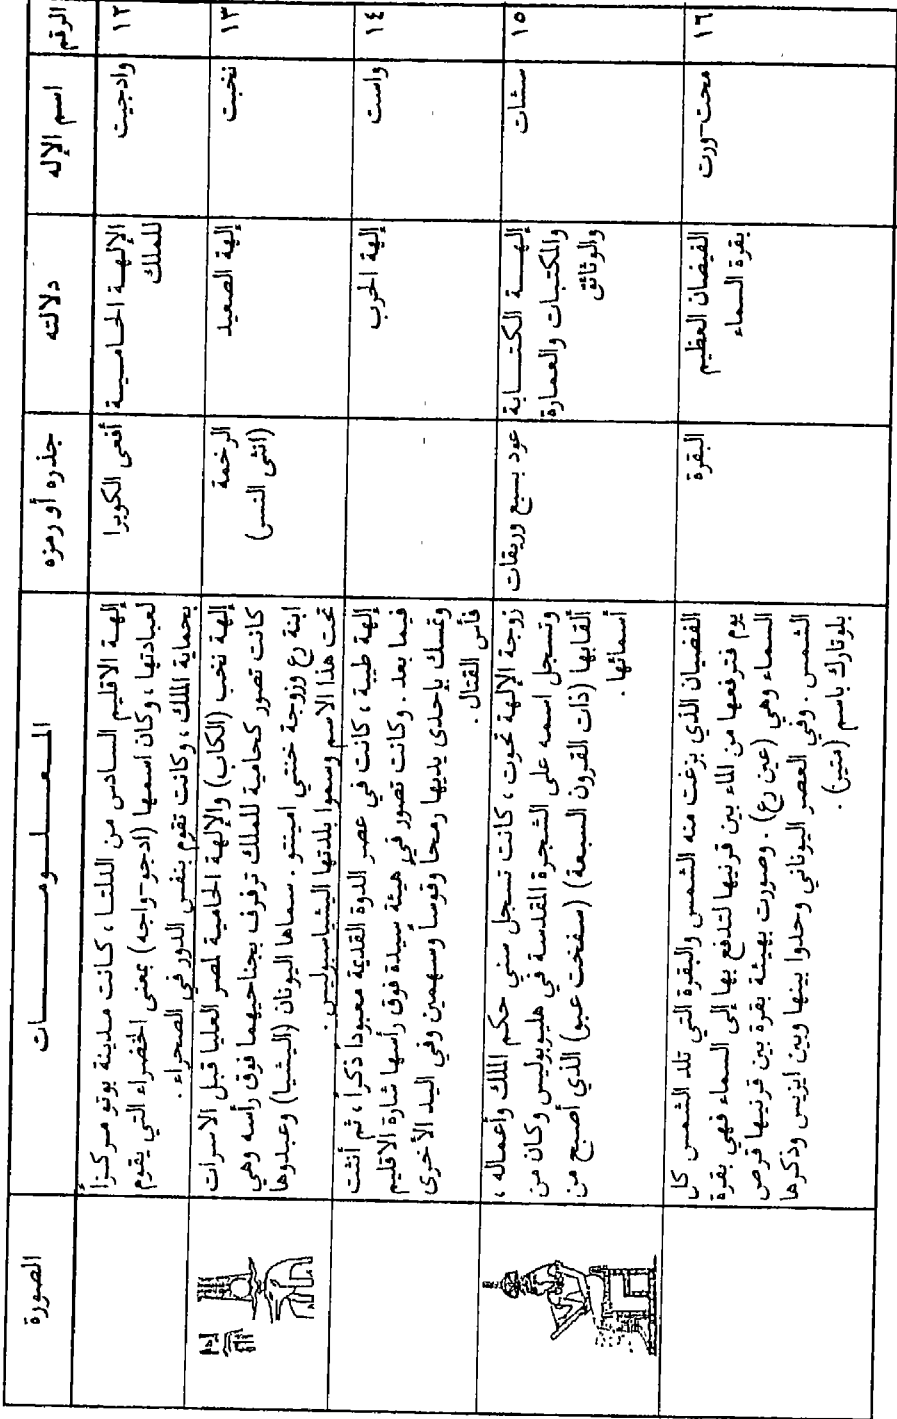 الرقم
اسم الإله
دلالته
جذره أو رمزه
المعلومات
الصورة
١٢
وادجيت
الإلهة الحامية
للملك
أفعى الكوبرا
إلهة الاقليم السادس من الدلتا ، كانت مدينة بوتو مركزاً
لعبادتها ، وكان اسمها (ادجو-واجه) بمعنى الخضراء التي يقوم
بحماية الملك ، وكانت تقوم بنفس الدور في الصحراء .
١٣
نخبت
إلهة الصعيد
الرخمة
(انثى النسر)
إلهة نخب (الكاب) والإلهة الحامية لمصر العليا قبل الاسرات
كانت تصور كحامية للملك ترفرف بجناحيهما فوق رأسه وهي
ابنة رع وزوجة خنتي امينتو . سماها اليونان (اليشيا) وعبدوها
تحت هذا الاسم وسموا بلدتها اليشياسبوليس .
١٤
واست
إلهة الحرب
-
إلهة طيبة ، كانت في عصر الدوة القديمة معبودا ذكراً ، ثم أنثت
فيما بعد . وكانت تصور في هيئة سيدة فوق رأسها شارة الاقليم
وتمسك بإحدى يديها رمحا وقوسا وسهمين وفي اليد الأخرى
فأس القتال .
١٥
سشات
إلهة الكتابة
والمكتبات والعمارة
والوثائق
عود بسبع وريقات
زوجة الإلهة تحوت ، كانت تسجل سني حكم الملك وأعماله ،
وتسجل اسمه على الشجرة المقدسة في هليوبوليس وكان من
ألقابها (ذات القرون السبعة) (سفخت عبو) الذي أصبح من
أسمائها .
١٦
محت-ورت
الفيضان العظيم
بقرة السماء
البقرة
الفضيان الذي بزغت منه الشمس والبقرة التي تلد الشمس كل
يوم فترفعها من الماء بين قرنيها لتدفع بها إلى السماء فهي بقرة
السماء وهي (عين رع) . وصورت بهيئة بقرة بين قرنيها قرص
الشمس . وفي العصر اليوناني وحدوا بينها وبين ايزيس وذكرها
بلوتارك باسم (متير) .